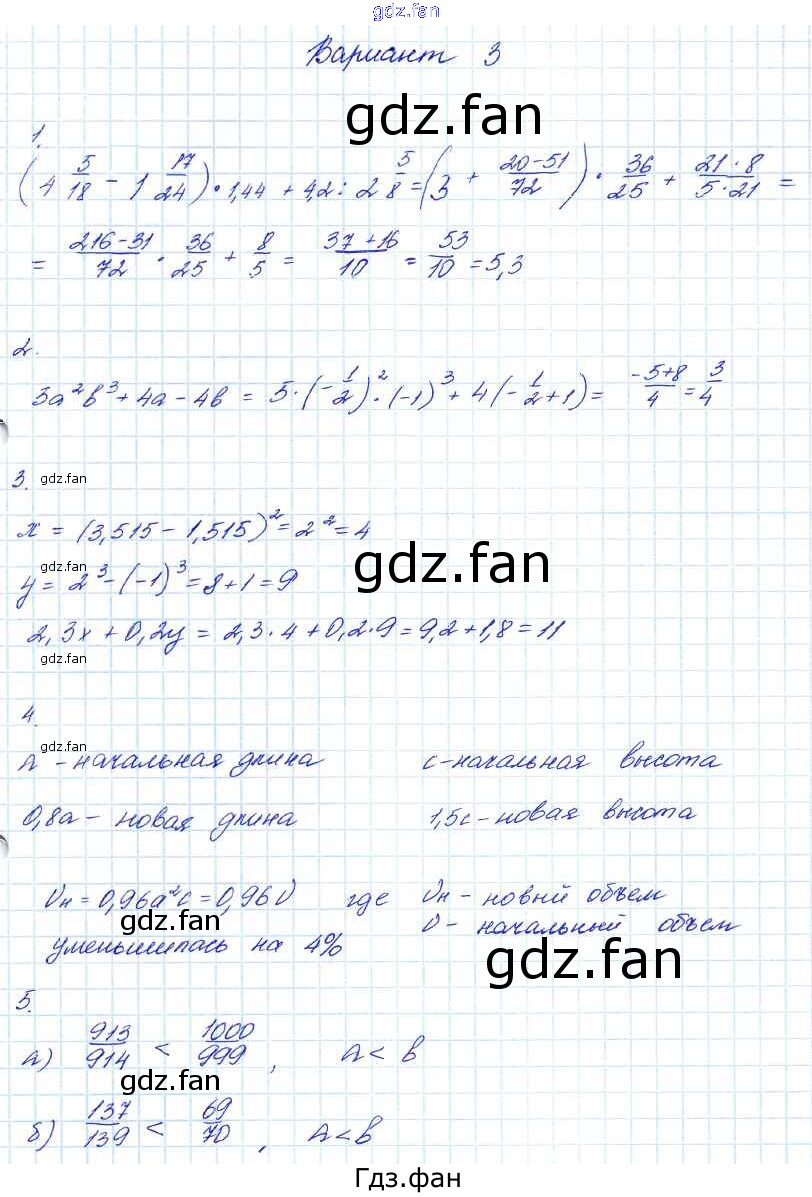 gdz.fan
Вариант 3
gdz.fan
1.
(4 5/18 - 1 17/24) · 1,44 + 4,2 : 2 5/8 = (3 + (20-51)/72) · 36/25 + (21·8)/(5·21) =
= (216-31)/72 · 36/25 + 8/5 = (37+16)/10 = 53/10 = 5,3
2.
5a²b³ + 4a - 4b = 5·(-1/2)²·(-1)³ + 4(-1/2+1) = (-5+8)/4 = 3/4
3. gdz.fan
x = (3,515 - 1,515)² = 2² = 4
gdz.fan
gdz.fan
y = 2³ - (-1)³ = 8+1 = 9
2,3x + 0,2y = 2,3·4 + 0,2·9 = 9,2 + 1,8 = 11
gdz.fan
4.
gdz.fan
a - начальная длина c - начальная высота
0,8a - новая длина 1,5c - новая высота
Vн = 0,96a²c = 0,96V где Vн - новый объем
gdz.fan
V - начальный объем
уменьшилась на 4%
gdz.fan
5.
а) 913/914 < 1000/999, a < b
gdz.fan
б) 137/139 < 69/70, a < b
Гдз.фан